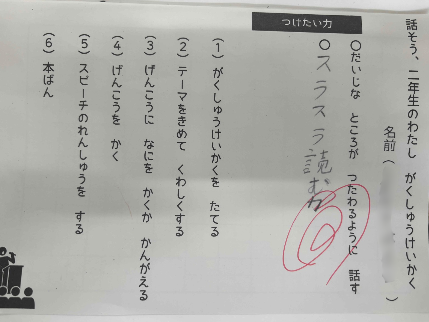 話そう、二年生のわたし がくしゅうけいかく
名前（　　　）
つけたい力
〇だいじな ところが つたわるように 話す
〇スラスラ読む力
（１）がくしゅうけいかくを たてる
（２）テーマをきめて くわしくする
（３）げんこうに なにを かくか かんがえる
（４）げんこうを かく
（５）スピーチのれんしゅうを する
（６）本ばん